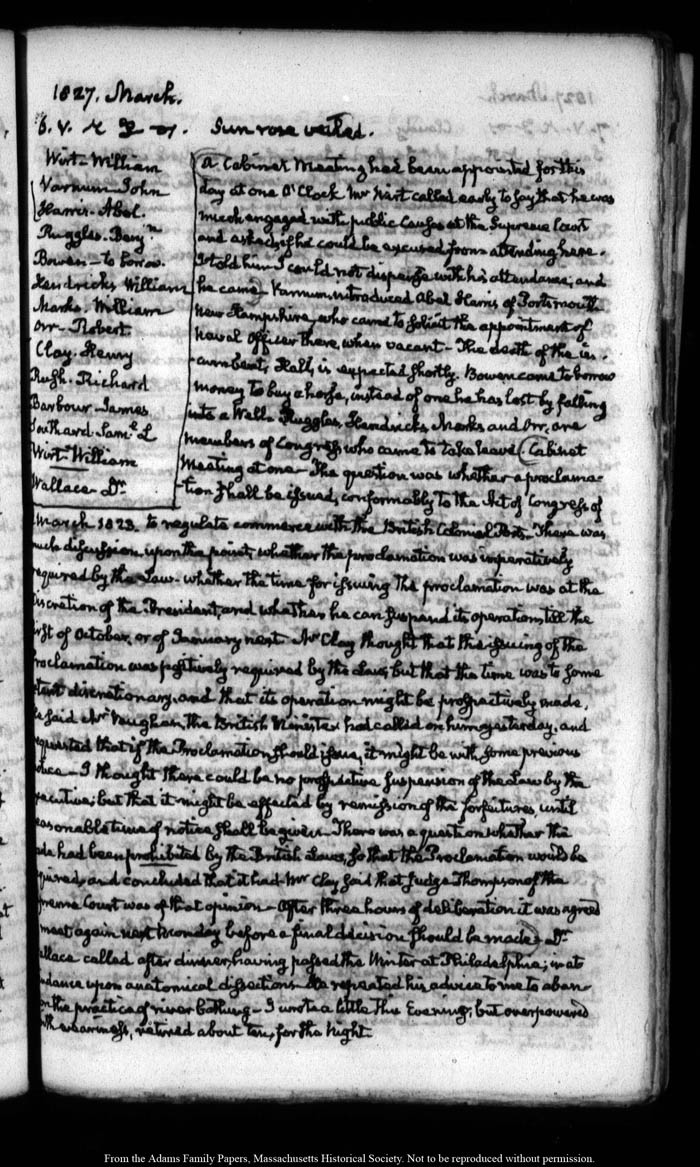 1827. March.
6. V. Sun rose veiled.
Wirt- William
Varnum- John
Harris- Abel.
Ruggles- Benjn
Bowen- to borrow.
Hendricks William
Marks. William
Orr- Robert.
Clay- Henry
Rush- Richard
Barbour- James
Southard- Saml L
Wirt- William
Wallace- Dr
A Cabinet Meeting had been appointed for this
day at one O'Clock Mr Wirt called early to say that he was
much engaged with public Causes at the Supreme Court
and asked if he could be excused from attending here.
I told him I could not dispense with his attendance, and
he came- Varnum introduced Abel Harris of Portsmouth
New Hampshire, who came to solicit the appointment of
Naval Officer there, when vacant- The death of the in-
cumbent, Hall, is expected shortly. Bowen came to borrow
money to buy a horse, instead of one he has lost by falling
into a Well- Ruggles, Hendricks, Marks and Orr, are
members of Congress who came to take leave. Cabinet
Meeting at one- The question was whether a proclama-
tion shall be issued, conformably to the Act of Congress of
March 1823. to regulate commerce with the British Colonial Ports- There was
much discussion upon the point, whether the proclamation was imperatively
required by the Law- whether the time for issuing the proclamation was at the
discretion of the President, and whether he can suspend its operation, till the
first of October, or of January next- Mr Clay thought that the issuing of the
proclamation was positively required by the Law, but that the time was to some
extent discretionary, and that its operation might be prospectively made,
he said Mr Vaughan, the British Minister had called on him yesterday, and
requested that if the Proclamation should issue, it might be with some previous
notice- I thought there could be no prospective suspension of the Law by the
Executive; but that it might be effected by remission of the forfeitures, until
reasonable time of notice shall be given- There was a question whether the
trade had been prohibited by the British Laws, so that the Proclamation would be
required, and concluded that it had- Mr Clay said that Judge Thompson of the
Supreme Court was of that opinion- After three hours of deliberation it was agreed
meet again next Monday before a final decision should be made- Dr
Wallace called after dinner, having passed the Winter at Philadelphia; in at-
tendance upon anatomical dissections- He repeated his advice to me to aban-
don the practice of river bathing- I wrote a little this Evening; but overpowered
with weariness, retired about ten, for the Night.
From the Adams Family Papers, Massachusetts Historical Society. Not to be reproduced without permission.